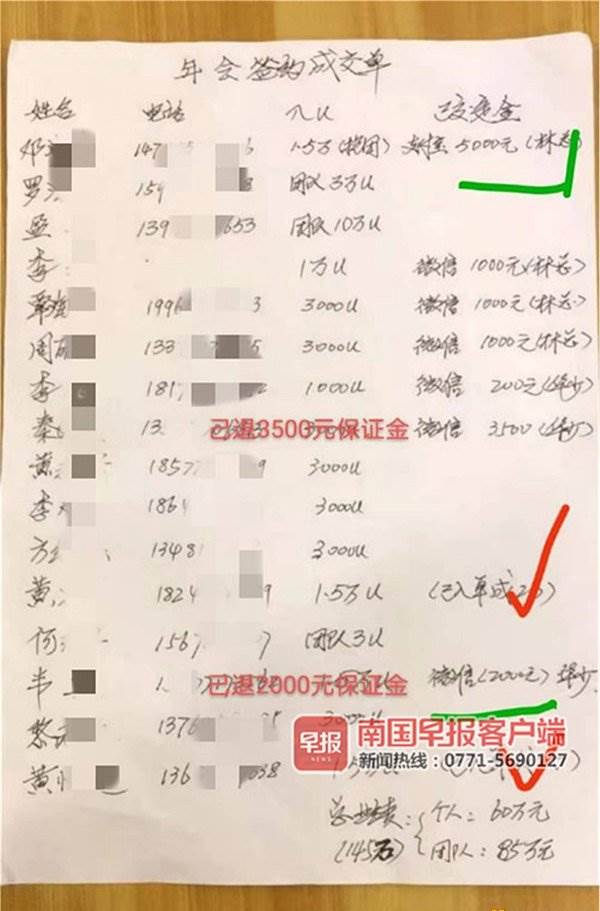 年会签约成交单
姓名 电话 入U 已交定金
邓 147 1.5万(抱团) 5000元(林总)
罗 159 8 团队3万U
蓝 139 653 团队10万U
李 1万U 微信 1000元(林总)
覃 1996 3 3000U 微信 1000元(林总)
周 133 5 3000U 微信 1000元(林总)
李 181 1000U 微信 200元(华少)
秦 13 已退3500元保证金 微信 3500(华少)
黄 1857 9 3000U
李 1864 3000U
方 1348 3000U
黄 1824 9 1.5万U (已入单成
何 156 7 团队3U
韦 1 已退2000元保证金 微信(2000元)华少
1376 3000U
黄 136 038
早报 NEWS 南国早报客户端
新闻热线:0771-5690127
总业绩: 个人:60万元
(145万) 团队:85万元